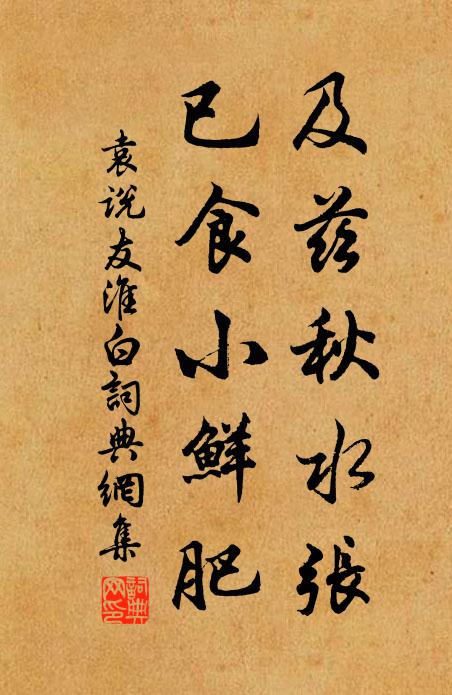 及茲秋水張
已食小鮮肥
袁說友淮白詞典網集
詞典網印